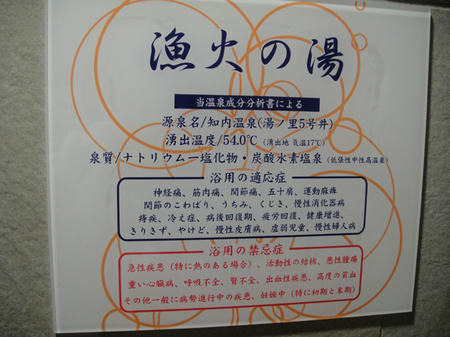 漁火の湯
当温泉成分分析書による
源泉名/知内温泉(湯ノ里5号井)
湧出温度/54.0℃ (湧出地 気温17℃)
泉質/ナトリウム―塩化物・炭酸水素塩泉 (低張性中性高温泉)
浴用の適応症
神経痛、筋肉痛、関節痛、五十肩、運動麻痺
関節のこわばり、うちみ、くじき、慢性消化器病
痔疾、冷え症、病後回復期、疲労回復、健康増進、
きりきず、やけど、慢性皮膚病、虚弱児童、慢性婦人病
浴用の禁忌症
急性疾患(特に熱のある場合)、活動性の結核、悪性腫瘍
重い心臓病、呼吸不全、腎不全、出血性疾患、高度の貧血
その他一般に病勢進行中の疾患、妊娠中(特に初期と末期)